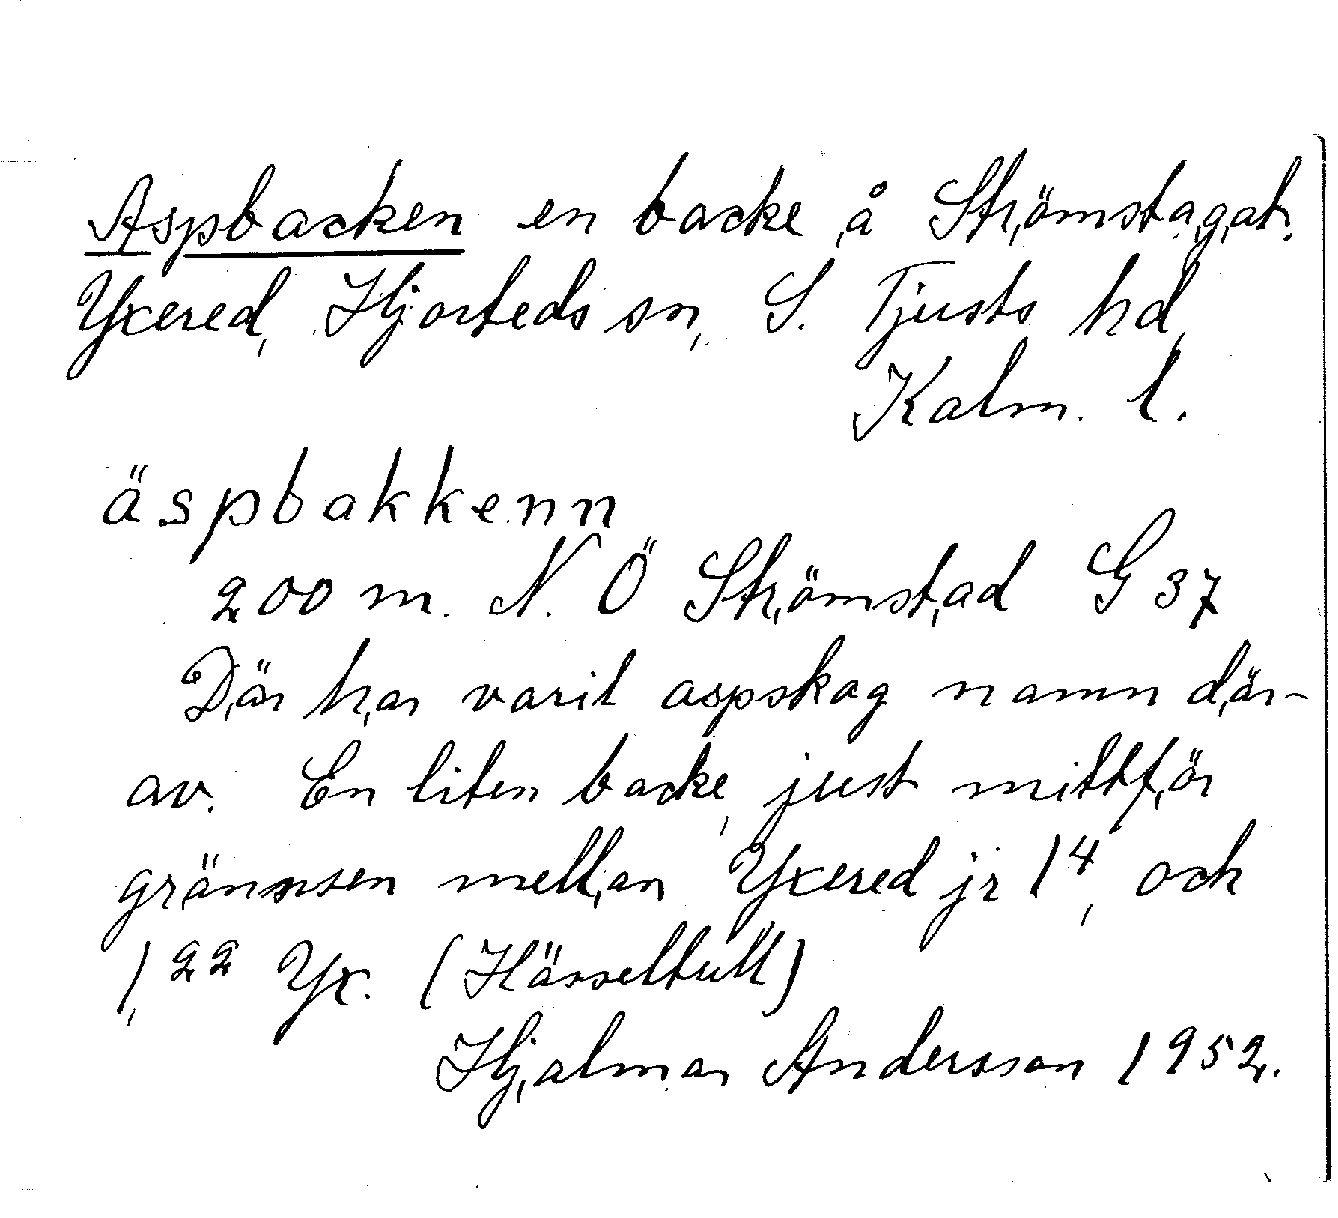 Aspbacken en backe å Strömstagat.
Yxered, Hjorteds sn, S. Tjusts hd,
Kalm. l.
äspbakkenn
200 m. N. Ö Strömstad G 37
Där har varit aspskog namn där-
av. En liten backe, just mittför
grännsen mellan Yxered jr 1⁴, och
1,²² Yx. (Hässeltull)
Hjalmar Andersson 1952.